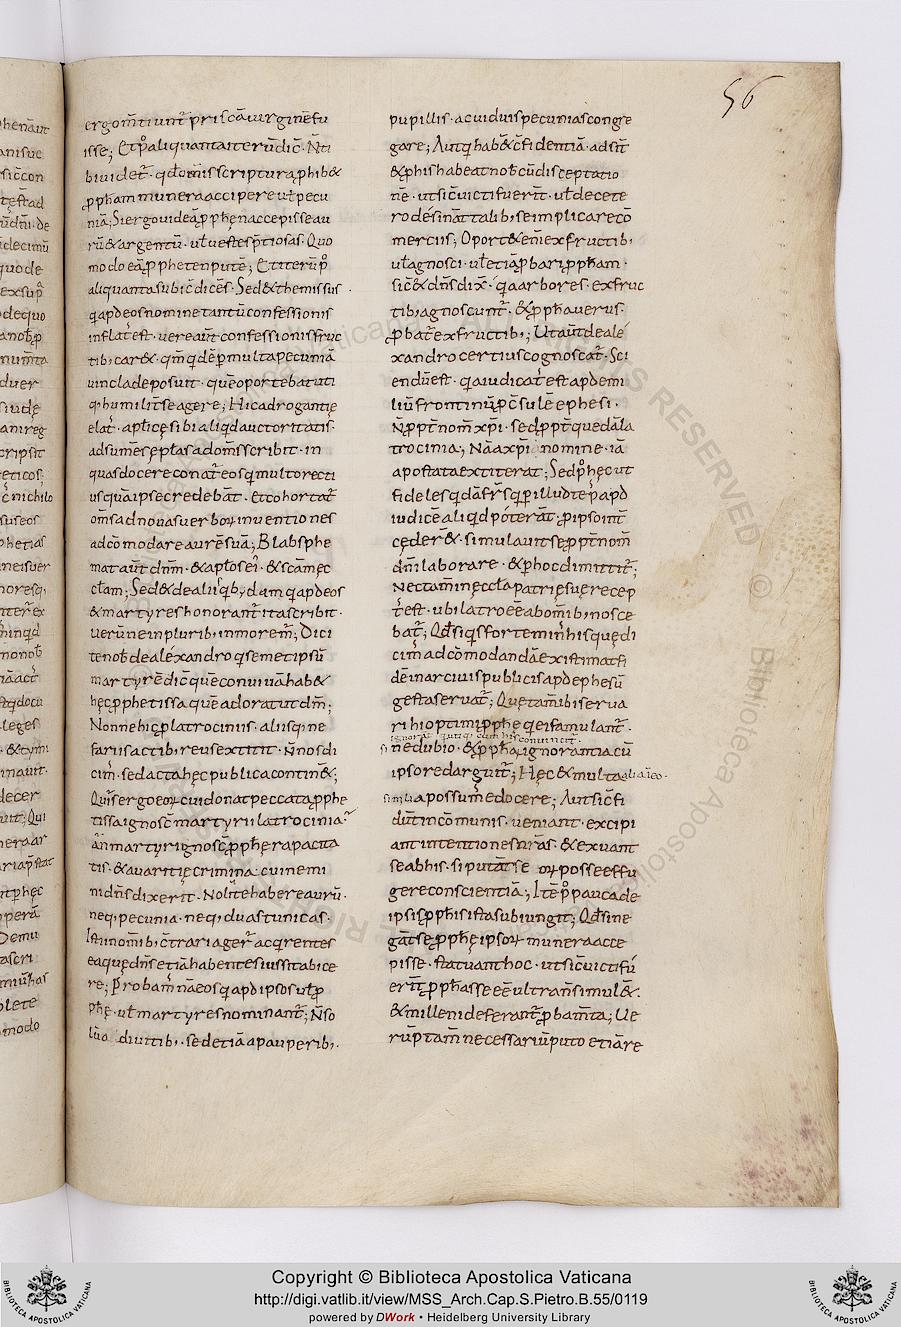 56
ergom̄tiunt᷑ priscā uirginēfu
isse; Et p̊ aliquanta iterū dic̄ · Nti
bi uidet᷑ · qd om̄is scriptura phib&
pph̄am munera accipere ut̄ pecu
niā; Si ergo uideā pphęn accepisse au
rū & argentū · ut̄ uestes p̄tiosas · Quo
modo eā pphęten putē; Et iterū p̊
aliquanta subic̄ dicēs · Sed & themissus ·
q apd eos nomine tantū confessionis
inflat᷑ est · uere aut̄ confessionis fruc
tib; car& · qm̄ qdē p multa pecuniā
uincla deposuit · quē oportebat uti
q; humilit̄ se agere; Hic adrogantię
elat᷑ · apt̄icę sibi aliqd auctoritatis
adsumēs eptas ad om̄s scribit · in
quas docere conat᷑ eos q multo recti
us quā ipse credebāt · Et cohortat᷑
om̄s ad nouas uerboꝝ inuentiones
adcōmodare aurē suā; Blabsphe
mat aut̄ dnm̄ · & apt̄os ei᷒ · & scām ęc
ct̄am; Sed & de aliqb; dam q apd eos
& martyres honorant᷑ ita scribit ·
Uerū ne in plurib; inmorem᷑; Dici
te nob̄ de aléxandro q semetipsū
martyrē dic̄ quē conuiuā hab&
hęc pphetissa quē adorat ut dm̄;
Nonne hic p latrociniis · aliisq; ne
fariis actib; reus extitit · N̄ nos di
cim᷒ · sed acta hęc publica contin&;
Quis ergo eoꝝ cui donat peccata pphe
tissa ignosc̄ martyrii latrocinia᷑
an̄ martyr ignosc̄ pphę rapacita
tis · & auaritię crimina · cui nemi
ni dn̄s dixerit · Nolite habere aurū ·
neq; pecunia · neq; duas tunicas ·
Isti nomib; c̄traria ger᷑ acq̄rentes
ea quę dn̄s etiā habentes iussit abice
re; Probam᷒ nā eos q apd ipsos ut̄ p
phę · ut̄ martyres nominant᷑; N̄ so
lū a diuitib; · sed etiā a pauperib; ·
pupillis · ac uiduis pecunias congre
gare; Aut q hab& c̄fidentiā · adsit̄
& p his habeat nob̄ cū disceptatio
nē · ut sic̄ uicti fuerīt · ut̄ de cete
ro désinānt talib; se implicare cō
merciis; Oport& eni ex fructib;
ut̄ agnosci · ut̄ etiā pbari pph̄am ·
Sic̄ & dn̄s dix̄ · qa arbores · ex fruc
tib; agnoscunt᷑ · & pph̄a uerus ·
p̄bat᷑ ex fructib;; Ut aut̄ de alé
xandro certius cognoscat᷑ · Sci
endū est · qa iudicat᷒ est ap demi
liū frontinū pc̄sulē ephesi ·
N̄ ppt̄ nom̄ xp̄i · sed ppt̄ quedā la
trocinia; Nā a xp̄i nomine · iā
apostata extiterat; Sed p̊ hęc ut
fideles qdā fr̄s q p illud tēp apd
iudicē aliqd póterāt · p ipso int̄
cęder& · simulauit se ppt̄ nom̄
dn̄i laborare · & p hoc dimittit᷑;
Nec tam̄ in ęcct̄a patrię fuę recep
t᷒ est · ubi latro eē ab om̄ib; nosce
bat᷑; Qd si q̄s forte min᷒ his quę di
cim᷒ adcōmodandā existimat fi
dē in arciuis publicis apd ephesū
gesta seruat᷑; Que tam̄ ibi serua
ri hi optimi pphę qei famulant᷑ ·
ignorat qutiq; cum his conuincit
sine dubio · & pph̄aꝝ ignorantia cū
ipso redarguit᷑; Hęc & multa alia eo
similia possum᷒ edocere; Aut si c̄fi
dūt in cōmunis · ueniant · excipi
ant intentiones nr̄as · & exuant
se ab his · si putāt se oꝝ posse effu
gere conscientiā; Itē p̊ pauca de
ipsis pph̄is ista subiungit; Qd si ne
gāt sę pphę ipsoꝝ munera acce
pisse · statuant hoc · ut sic̄ uicti fū
erīt pph̄as se eē ultra n̄ simul&᷑ ·
& milleni deferant᷑ pbam̄ta; Ue
rūptam̄ necessariū puto etiā re
Copyright © Biblioteca Apostolica Vaticana
http://digi.vatlib.it/view/MSS_Arch.Cap.S.Pietro.B.55/0119
powered by DWork • Heidelberg University Library